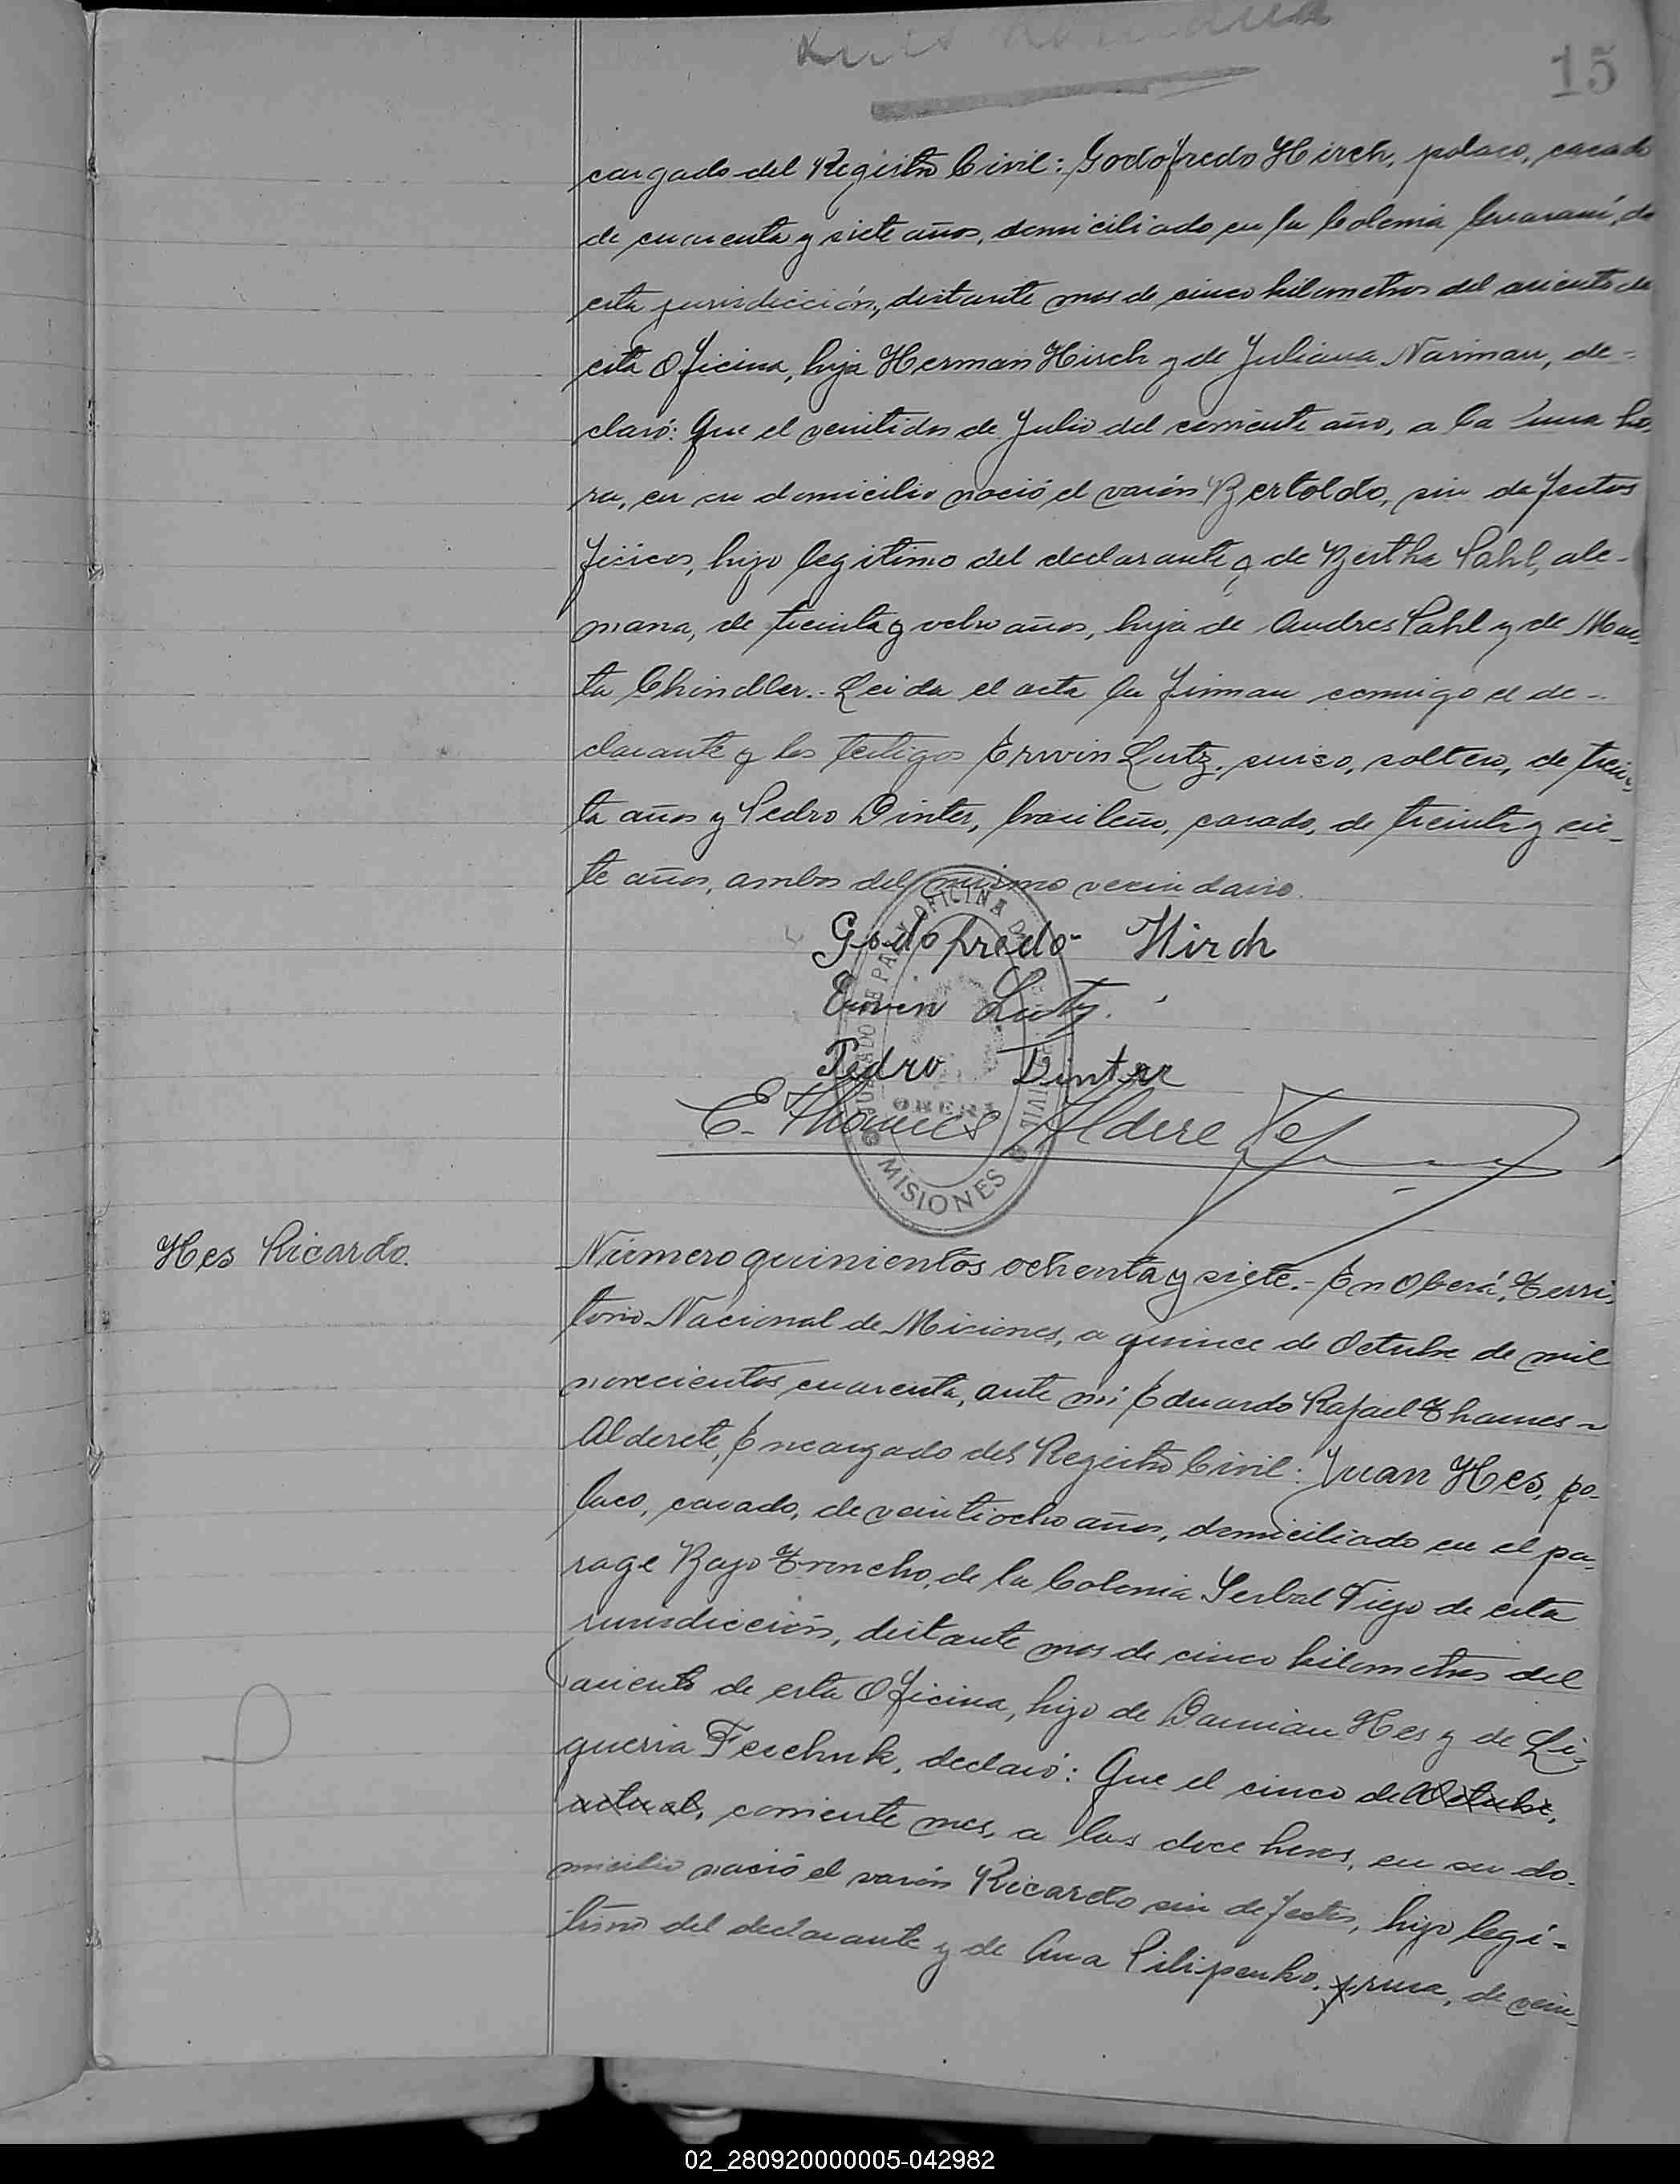 15
cargado del Registro Civil: Godofredo Hirch, polaco, casado
de cuarenta y siete años, domiciliado en la Colonia Guaraní, de
esta jurisdicción, distante mas de cinco kilometros del asiento de
esta Oficina, hijo Herman Hirch y de Juliana Nariman, de-
claró: Que el veintidos de Julio del corriente año, a la una ho-
ra, en su domicilio nació el varón Bertoldo, sin defectos
fisicos, hijo legitimo del declarante y de Bertha Pahl, ale-
mana, de treinta y ocho años, hija de Andres Pahl y de Mar-
ta Chindler.- Leida el acta la firman conmigo el de-
clarante y los testigos Erwin Lutz, suizo, soltero, de trein-
ta años y Pedro Dinter, brasileño, casado, de treinta y sie-
te años, ambos del mismo vecindario.
Godofredo Hirch
Erwin Lutz.
Pedro Dinter
E. Thames Aldere
OFICINA
OBERA
MISIONES
Hes Ricardo.
Número quinientos ochenta y siete.- En Oberá, Terri-
torio Nacional de Misiones, a quince de Octubre de mil
novecientos cuarenta, ante mí Eduardo Rafael Thames
Alderete, Encargado del Registro Civil: Juan Hes, po-
laco, casado, de veintiocho años, domiciliado en el pa-
rage Bajo Troncho, de la Colonia Yerbal Viejo de esta
jurisdicción, distante mas de cinco kilometros del
asiento de esta Oficina, hijo de Damian Hes y de Li-
gueria Feschuk, declaró: Que el cinco del Octubre,
actual, corriente mes, a las doce horas, en su do-
micilio nació el varón Ricardo sin defectos, hijo legí-
timo del declarante y de Ana Pilipenko, rusa, de vein-
02_280920000005-042982